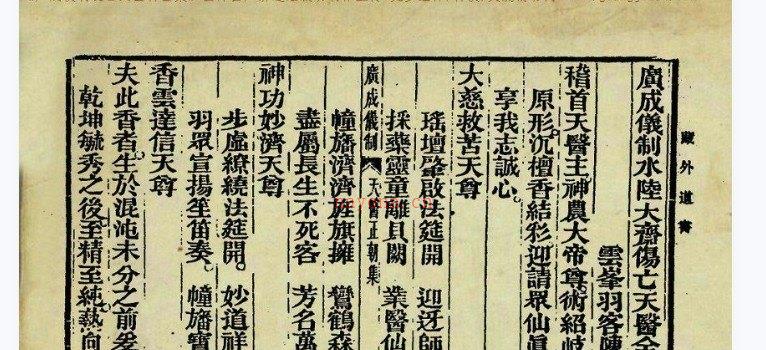 藏外道書
廣成儀制水陸大齋傷亡天醫全
雲峯羽客陳
稽首天醫主神農大帝尊術紹岐
原形沉檀香結彩迎請眾仙眞
享我志誠心
大慈救苦天尊
瑤壇肇啟法筵開 迎迓師
採藥靈童離貝闕 業醫仙
廣成儀制 天醫正朝集
幢旛濟濟旌旗擁 鸞鶴森
盡屬長生不死客 芳名萬
神功妙濟天尊
步虛繚繞法筵開 妙道祥
羽眾宣揚笙笛奏 幢旛寶
香雲達信天尊
夫此香者生於混沌未分之前
乾坤毓秀之後至精至純熱向